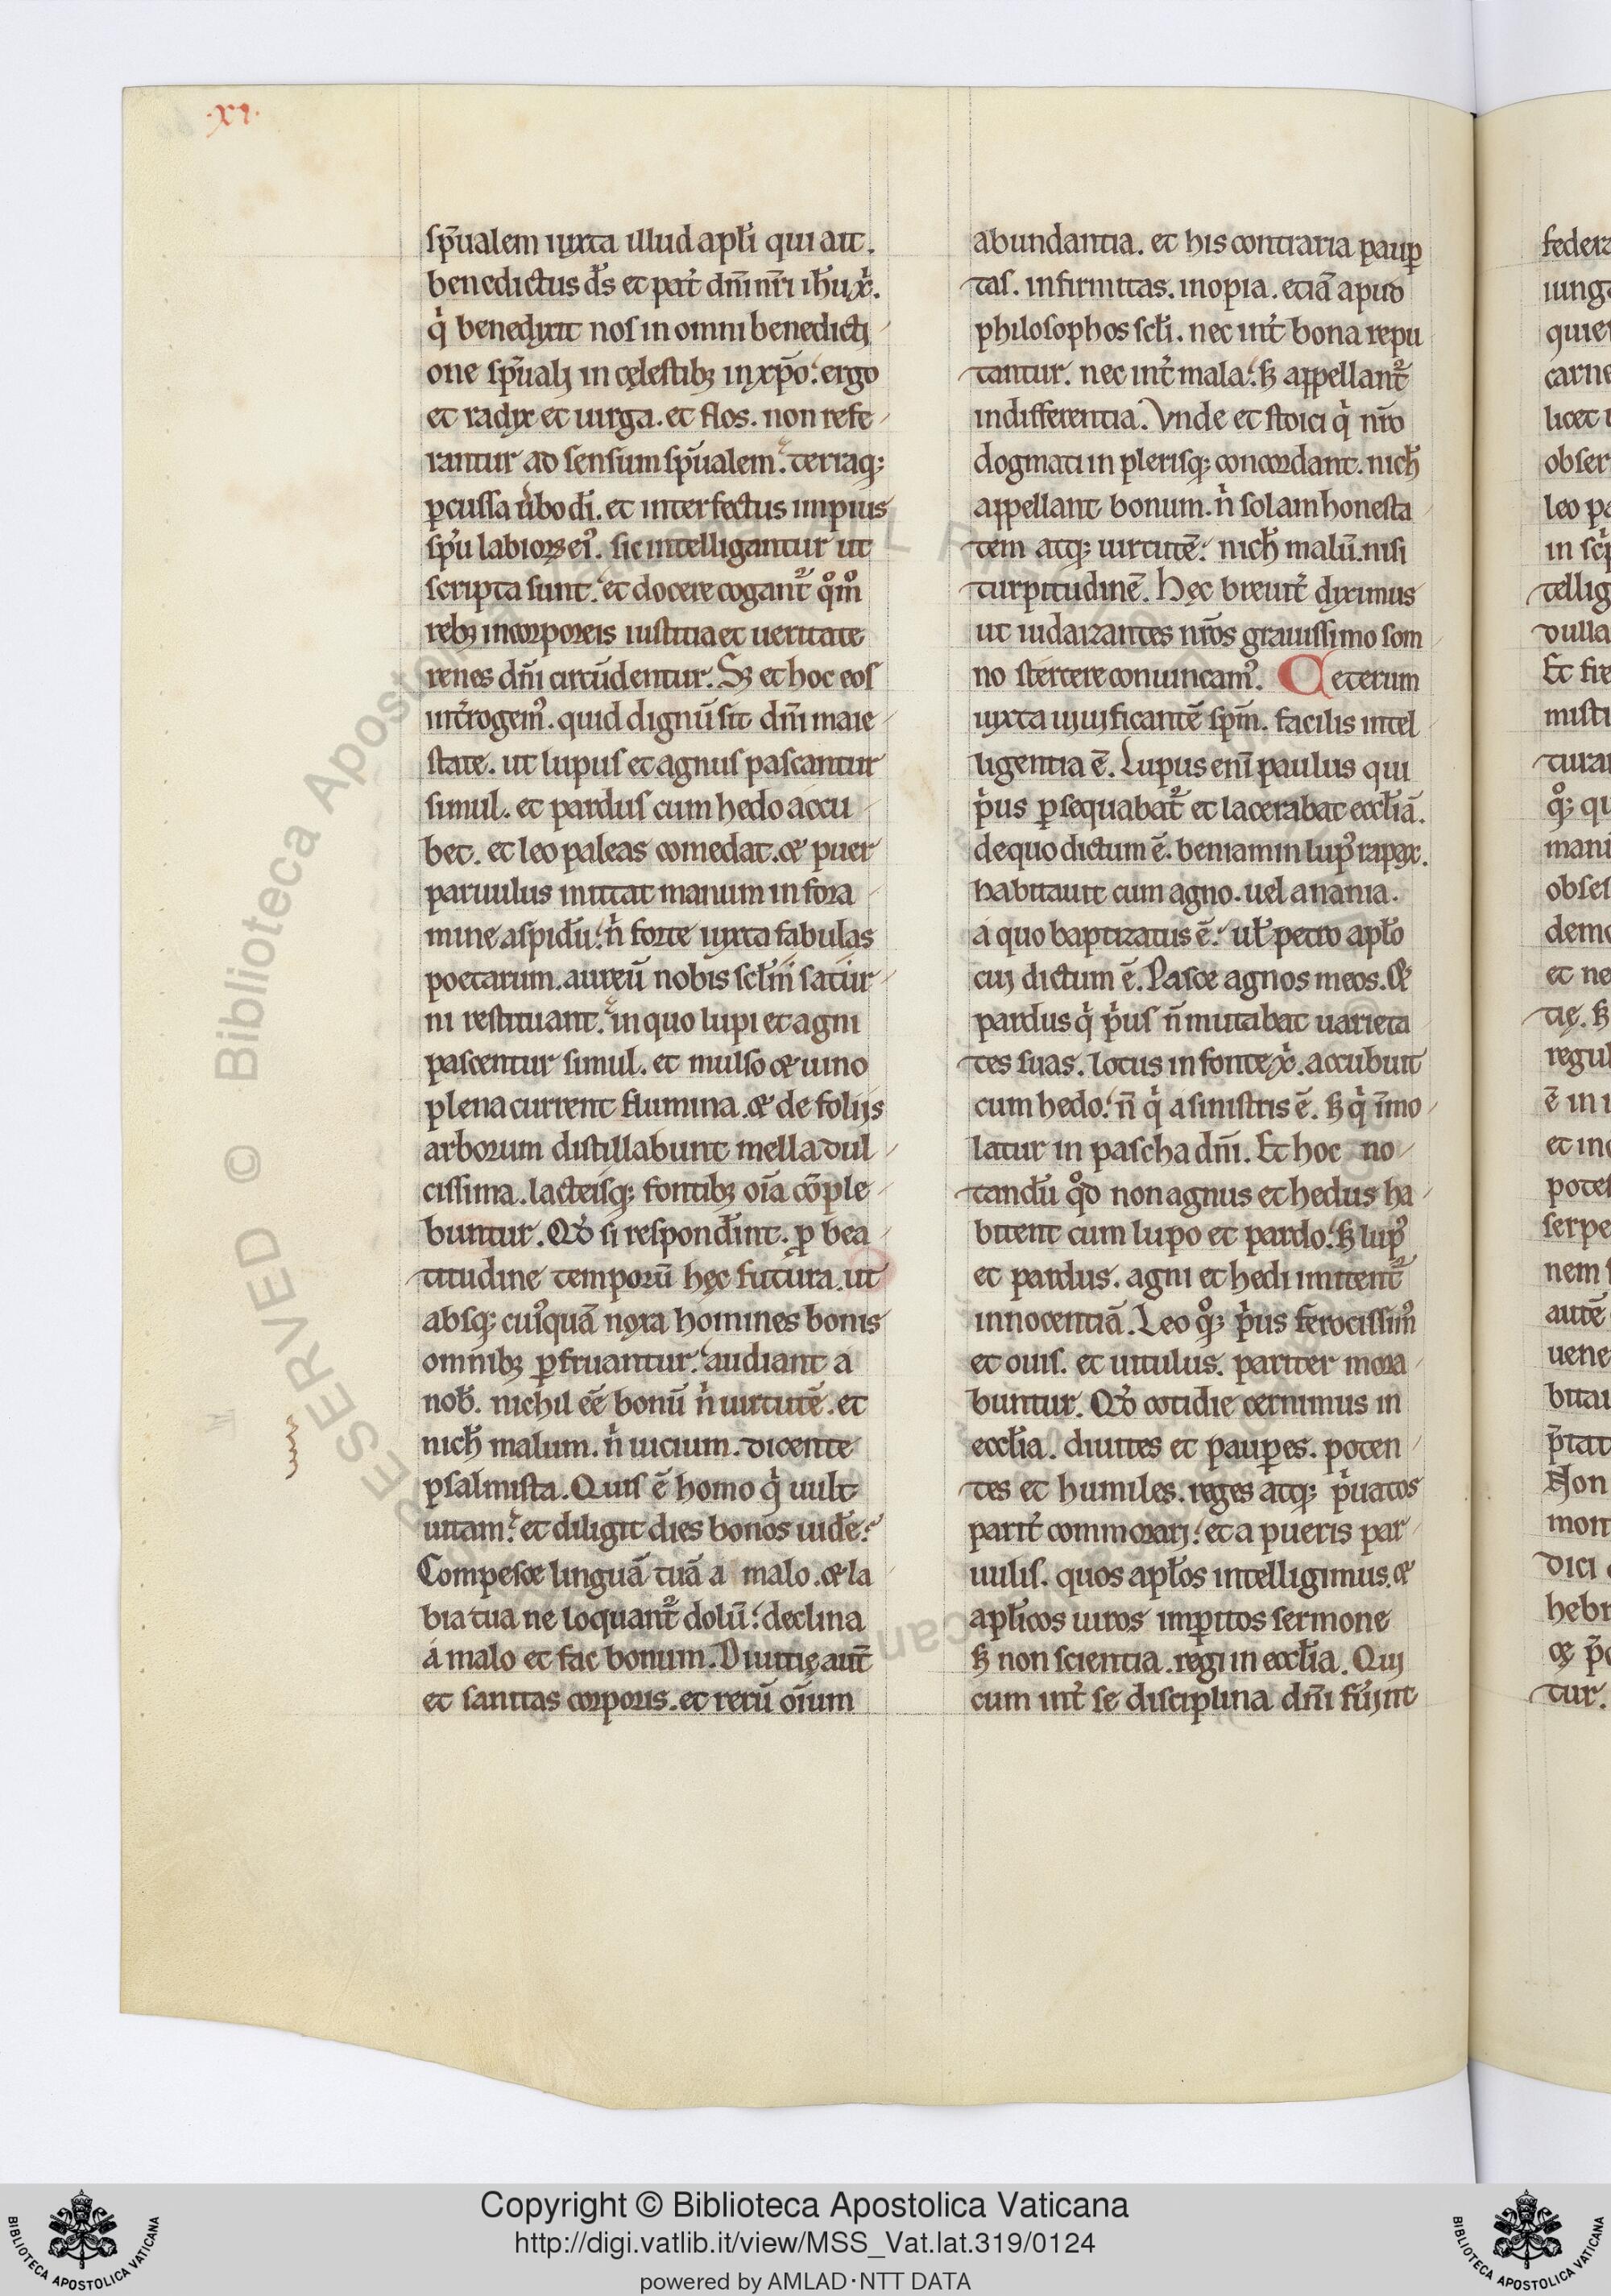 ·xi·
sp̄ualem iuxta illud apl̄i qui ait.
benedictus d̄s et pat̓ dn̄i nr̄i ih̄u x̓.
q̓ benedixit nos in omni benedicti
one sp̄uali in cęlestibꝫ in xp̄o. ergo
et radix et uirga. et flos. non refe
rantur ad sensum sp̄ualem. terraqꝫ
ꝑcussa u̓bo di̓. et interfectus impius
sp̄u labioꝝ ei᾿. sic intelligantur ut
scripta sunt. et docere cogant᷑ qͦm̊
rebꝫ incorporeis iustitia et ueritate
renes dn̄i circūdentur. Sꝫ et hoc eos
int̓rogem᾿. quid dignū sit dn̄i maie
state. ut lupus et agnus pascantur
simul. et pardus cum hedo accu
bet. et leo paleas comedat. & puer
paruulus mittat manum in fora
mine aspidū. n̓ forte iuxta fabulas
poetarum. aureū nobis scl̄m satur
ni restituant. in quo lupi et agni
pascentur simul. et mulso & uino
plena current flumina. & de folijs
arborum distillabunt mella dul
cissima. lacteisqꝫ fontibꝫ oīa cōple
buntur. Qd̓ si respond̓int. ꝑ bea
titudine temporū hęc futura. ut
absqꝫ cui᾿quā noxa homines bonis
omnibꝫ ꝑfruantur. audiant a
nob̓. nichil eē bonū n̓ uirtutē. et
nich̓ malum. n̓ uicium. dicente
psalmista. Quis ē homo q̓ uult
uitam. et diligit dies bonos uid̓e.
Compesce linguā tuā a malo. & la
bia tua ne loquant᷑ dolū. declina
a malo et fac bonum. Diuitię aut̄
et sanitas corporis. et rerū oīum
abundantia. et his contraria pauꝑ
tas. infirmitas. inopia. etiā apud
philosophos scl̓i. nec int̓ bona repu
tantur. nec int̓ mala. sꝫ appellant᷑
indifferentia. Vnde et stoici q̓ nr̄o
dogmati in plerisqꝫ concordant. nich̓
appellant bonum. n̓ solam honesta
tem atqꝫ uirtutē. nich̓ malū. nisi
turpitudinē. Hęc breuit̓ diximus
ut iudaizantes nr̄os grauissimo som
no stertere conuincam᾿. Ceterum
iuxta uiuificantē sp̄m. facilis intel
ligentia ē. Lupus enī paulus qui
p̓us ꝑsequabat᷑ et lacerabat eccl̄iā.
de quo dictum ē. beniamin lup᾿ rapax.
habitauit cum agno. uel anania.
a quo baptizatus ē. ul̓ petro apl̄o
cui dictum ē. Pasce agnos meos. &
pardus q̓ p̓us n̄ mutabat uarieta
tes suas. lotus in fonte x̓. accubuit
cum hedo. n̄ q̓ a sinistris ē. sꝫ q̓ īmo
latur in pascha dn̄i. Et hoc no
tandū qͦd non agnus et hedus ha
bitent cum lupo et pardo. sꝫ lup᾿
et pardus. agni et hedi imitent᷑
innocentiā. Leo qͦꝫ p̓us ferocissim᾿
et ouis. et uitulus. pariter mora
buntur. Qd̓ cotidie cernimus in
eccl̄ia. diuites et pauꝑes. poten
tes et humiles. reges atqꝫ p̓uatos
parit̓ commorari. et a pueris par
uulis. quos apl̄os intelligimus. &
apl̄icos uiros imꝑitos sermone
sꝫ non scientia. regi in eccl̄ia. Qui
cum int̓ se disciplina dn̄i fu̓int
iung
carne
licet
obser
leo pa
tellig
dulla
Et fie
misti
mani
et ne
regul
ē in i
pote
serpe
nem
autē
uene
Non
dici
hebr
tur.
Copyright © Biblioteca Apostolica Vaticana
http://digi.vatlib.it/view/MSS_Vat.lat.319/0124
powered by AMLAD·NTT DATA
BIBLIOTECA APOSTOLICA VATICANA
BIBLIOTECA APOSTOLICA VATICANA